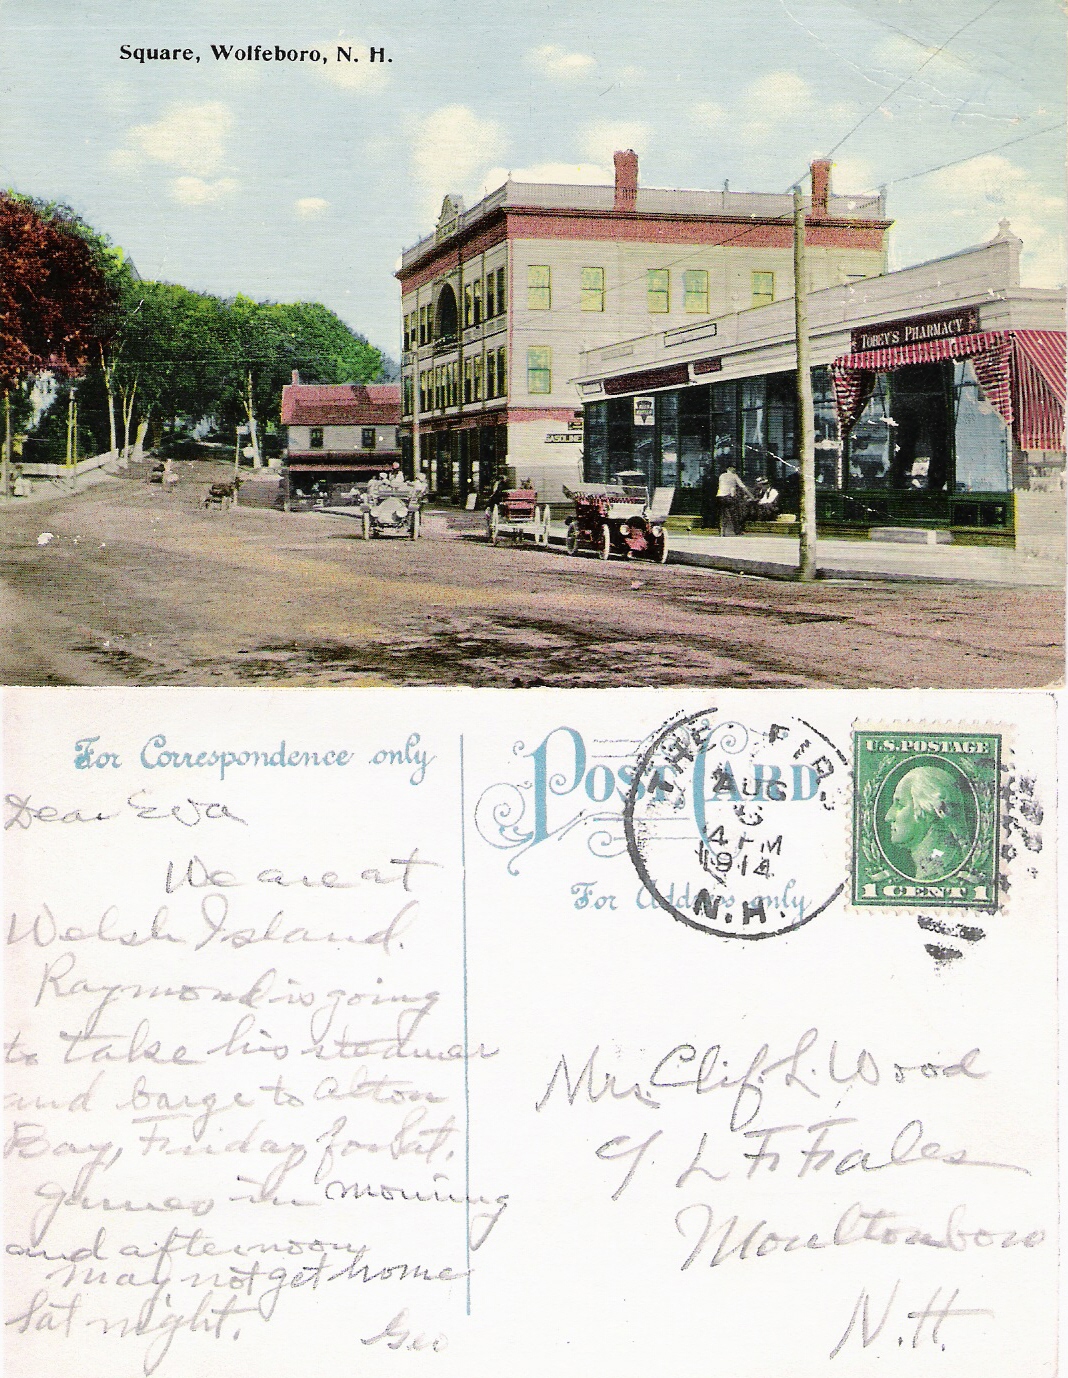 Square, Wolfeboro, N. H.
TOBEY'S PHARMACY
GASOLINE
For Correspondence only
POST CARD
For Address only
THE
AUG
4 PM
1914
N.H.
U.S. POSTAGE
1 CENT 1
Dear Eva
We are at
Welsh Island.
Raymond is going
to take his steamer
and barge to Alton
Bay, Friday for Sat.
games in morning
and afternoon
may not get home
Sat night.
Geo
Mrs. Clif. L. Wood
L F Fales
Moultonboro
N.H.